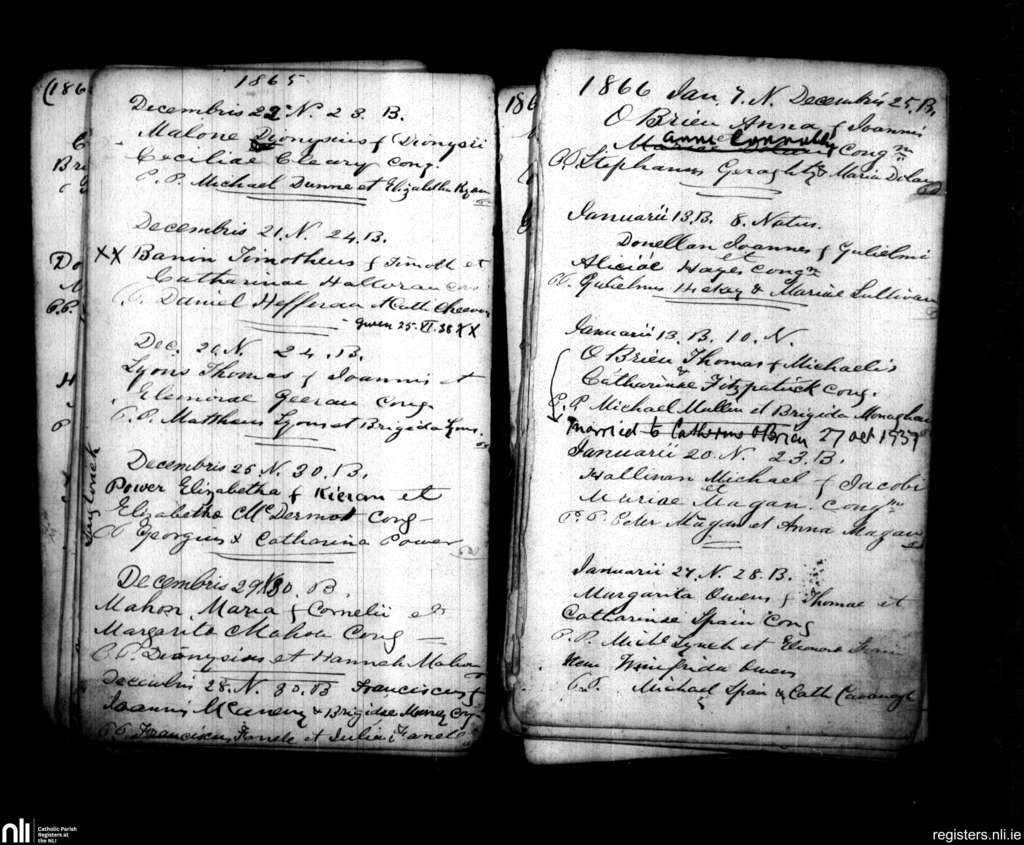 1865
Decembris 22 N. 23. B.
Malone Dionysius f Dionysii
Ceciliae Cleary Cong.
P. P. Michael Dunne et Elizabetha Ryan
Decembris 21. N. 24. B.
XX Banin Timotheus f Timoth et
Catharinae Halloran Con
P. P. Daniel Hefferan Cath
Given 25. VI. 38 XX
Dec. 20. N. 24. B.
Lyons Thomas f Joannis et
Geeran Cong.
P. P. Mattheus Lyons et Brigida Lyons.
Decembris 25 N. 30. B.
Power Elizabetha f Kieran et
Elizabetha McDermot Cong
P Georgius & Catharina Power
Decembris 29 N 30. B.
Mahon Maria f Cornelii et
Margarita Mahon Cong
P. P. Dionysius et Hannah Mahon
Decembris 28. N. 30. B Franciscus f
Joannis & Brigidae Cong
P. P. Franciscus et Julia
1866 Jan. 7. N. Decembris 25. B.
O Brien Anna f Joannis
Anne Connolly Congm
P. P. Stephanus Geraghty & Maria Dolan
Januarii 13. B. 8. Natus.
Donellan Joannes f Gulielmi
et
Aliciae Hayes Congm
P. P. Gulielmus Hickey & Mariae Sullivan
Januarii 13. B. 10. N.
O Brien Thomas f Michaelis
&
Catharinae Fitzpatrick Cong.
P. P Michael Mullin et Brigida Monaghan
Married to Catherine O'Brien 27 Oct 1937
Januarii 20. N. 23. B.
Hallinan Michael f Jacobi
et
Mariae Magan. Congm
P. P. Peter Magan et Anna Magan
Januarii 27. N. 28. B.
Margarita Owens f Thomae et
Catharinae Spain Cong
P. P. Michl Lynch et Eleonora
Item Winifrida Owens
P. P. Michael Spain & Cath Cavanagh
nli
Catholic Parish
Registers at
the NLI
registers.nli.ie